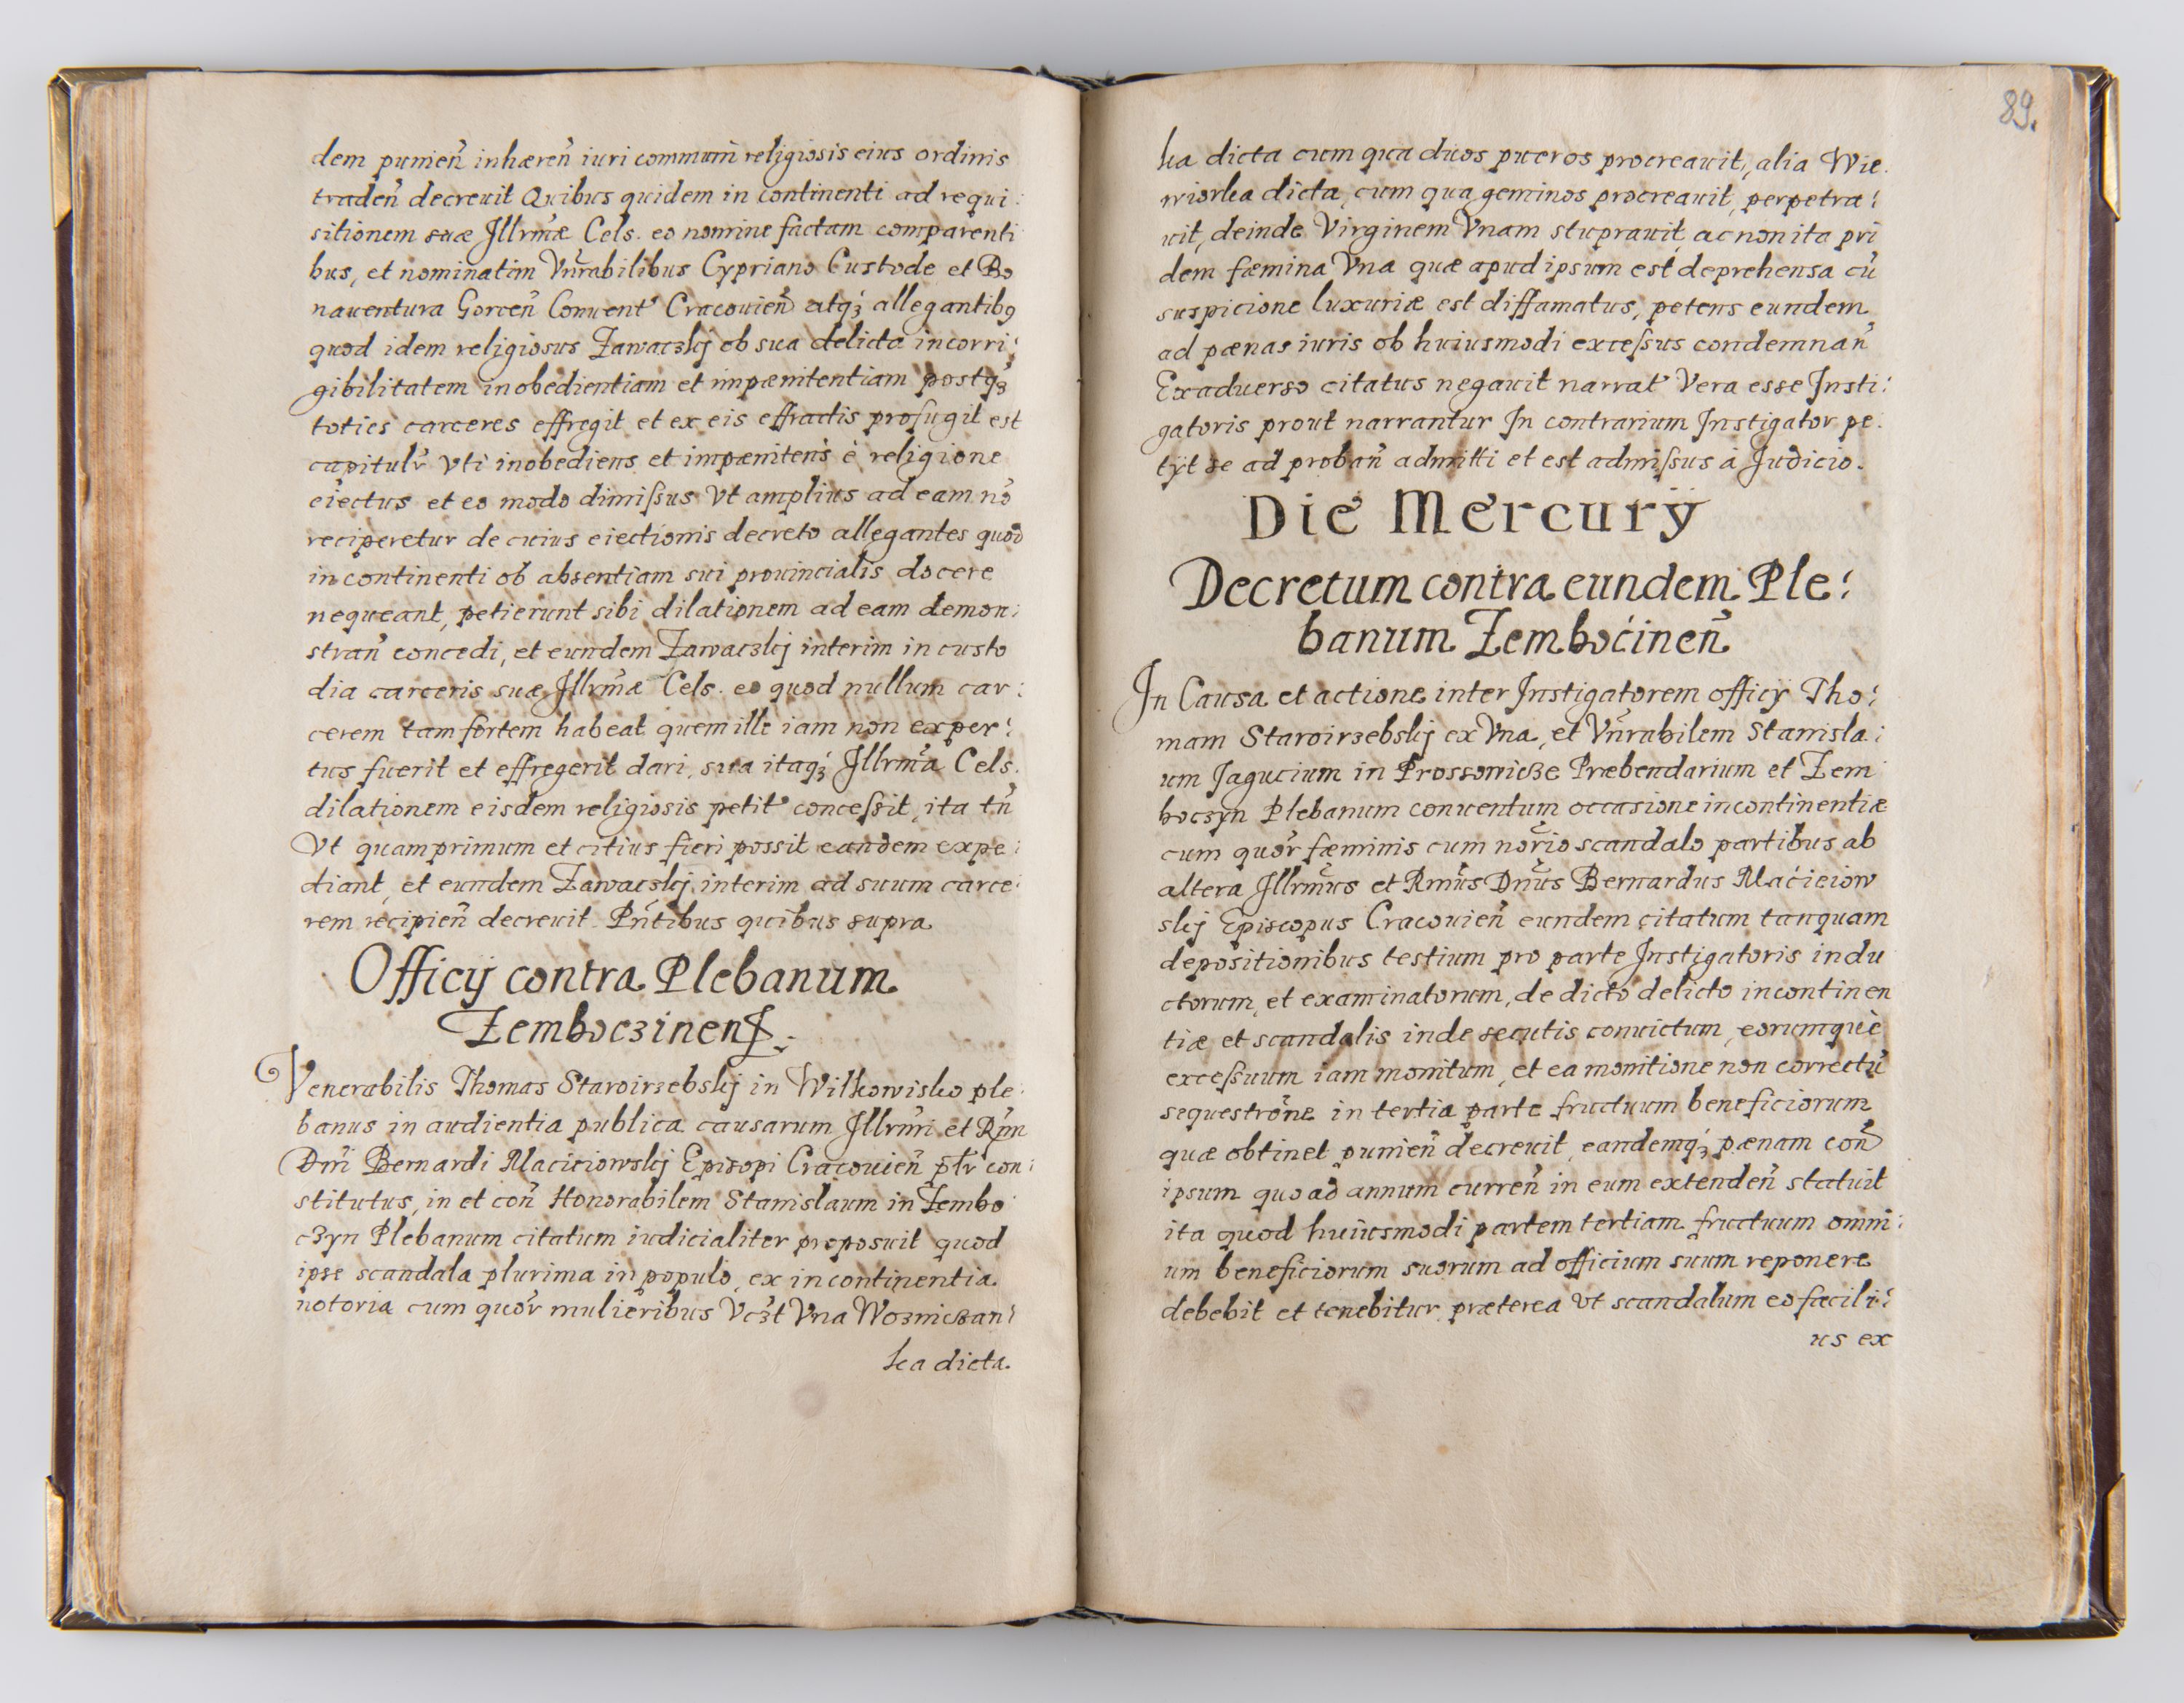 dem punien̄ inhæren̄ iuri communi religiosis eius ordinis
traden̄ decreuit Quibus quidem in continenti ad requi:
sitionem suæ Jllrm̃æ Cels. eo nomine factam comparenti
bus, et nominatim Vnr̃abilibus Cypriano Custode et Bo
nauentura Gorcen̄ Conuent9 Cracouien̄ atq3 allegantib9
quod idem religiosus Zawaczkj ob sua delicta incorri:
gibilitatem inobedientiam et impænitentiam postq3
toties carceres effregit et ex eis effractis profugit est
capitulr̃ vti inobediens et impænitens è religione
eiectus et eo modo dimissus vt amplius ad eam nō
reciperetur de cuius eiectionis decreto allegantes quod
in continenti ob absentiam sui prouincialis docere
nequeant, petierunt sibi dilationem ad eam demon:
stran̄ concedi, et eundem Zawaczkj interim in custo
dia carceris suæ Jllrm̃æ Cels. eo quod nullum car:
cerem tam fortem habeat quem ille iam non exper:
tus fuerit et effregerit dari, sua itaq3 Jllrm̃a Cels.
dilationem eisdem religiosis petit9 concessit, ita tn̄
Vt quamprimum et citius fieri possit eandem expe:
diant, et eundem Zawaczkj interim ad suum carce:
rem recipien̄ decreuit Pn̄tibus quibus supra
Officij contra Plebanum
Zemboczinen̄.
Venerabilis Thomas Staroirzebskj in Wilkowisko ple:
banus in audientia publica causarum Jllrm̃i et Rm̃i
Dn̄i Bernardi Macieiowskj Episopi Cracouien̄ ptr̃ con:
stitutus, in et con̄ Honorabilem Stanislaum in Zembo
czyn Plebanum citatum iudicialiter proposuit quod
ipse scandala plurima in populo, ex incontinentia
notoria cum quor̃ mulieribus Vcz̃t Vna Wozniczan:
ka dicta.
89.
ka dicta cum qua duos pueros procreauit, alia Wie:
wiorka dicta, cum qua geminos procreauit, perpetra:
uit, deinde Virginem Vnam stuprauit, ac non ita pri
dem fæmina Vna quæ apud ipsum est deprehensa cū
suspicione luxuriæ est diffamatus, petens eundem
ad pænas iuris ob huiusmodi excessus condemnan̄
Exaduerso citatus negauit narrat9 Vera esse Insti:
gatoris prout narrantur In contrarium Instigator pe:
tÿt se ad proban̄ admitti et est admissus à Judicio.
Die Mercurÿ
Decretum contra eundem Ple:
banum Zembocinen̄
In Causa et actione inter Instigatorem officÿ Tho:
mam Staroirzebskj ex Vna, et Vnr̃abilem Stanisla:
um Jagucium in Prossowicze Præbendarium et Zem
boczyn Plebanum conuentum occasione incontinentiæ
cum quor̃ fæminis cum nor̃io scandalo partibus ab
altera Jllrm̃us et Rm̃us Dn̄us Bernardus Macieiow
skj Episcopus Cracouien̄ eundem citatum tanquam
depositionibus testium pro parte Instigatoris indu
ctorum, et examinatorum, de dicto delicto incontinen
tiæ et scandalis inde secutis conuictum, eorumque
excessuum iam monitum, et ea monitione non correctū
sequestrõne in tertia parte fructuum beneficiorum
quæ obtinet punien̄ decreuit, eandemq3 pænam con̄
ipsum quoad annum curren̄ in eum extenden̄ statuit
ita quod huiusmodi partem tertiam fructuum omni:
um beneficiorum suorum ad officium suum reponere
debebit et tenebitur præterea vt scandalum eo facili:
us ex